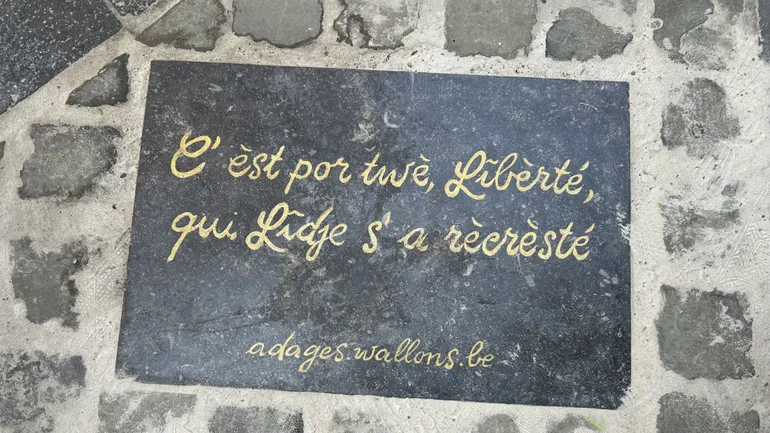 C' èst por twè, Lîbèrté,
qui Lîdje s' a rècrèsté
adages.wallons.be